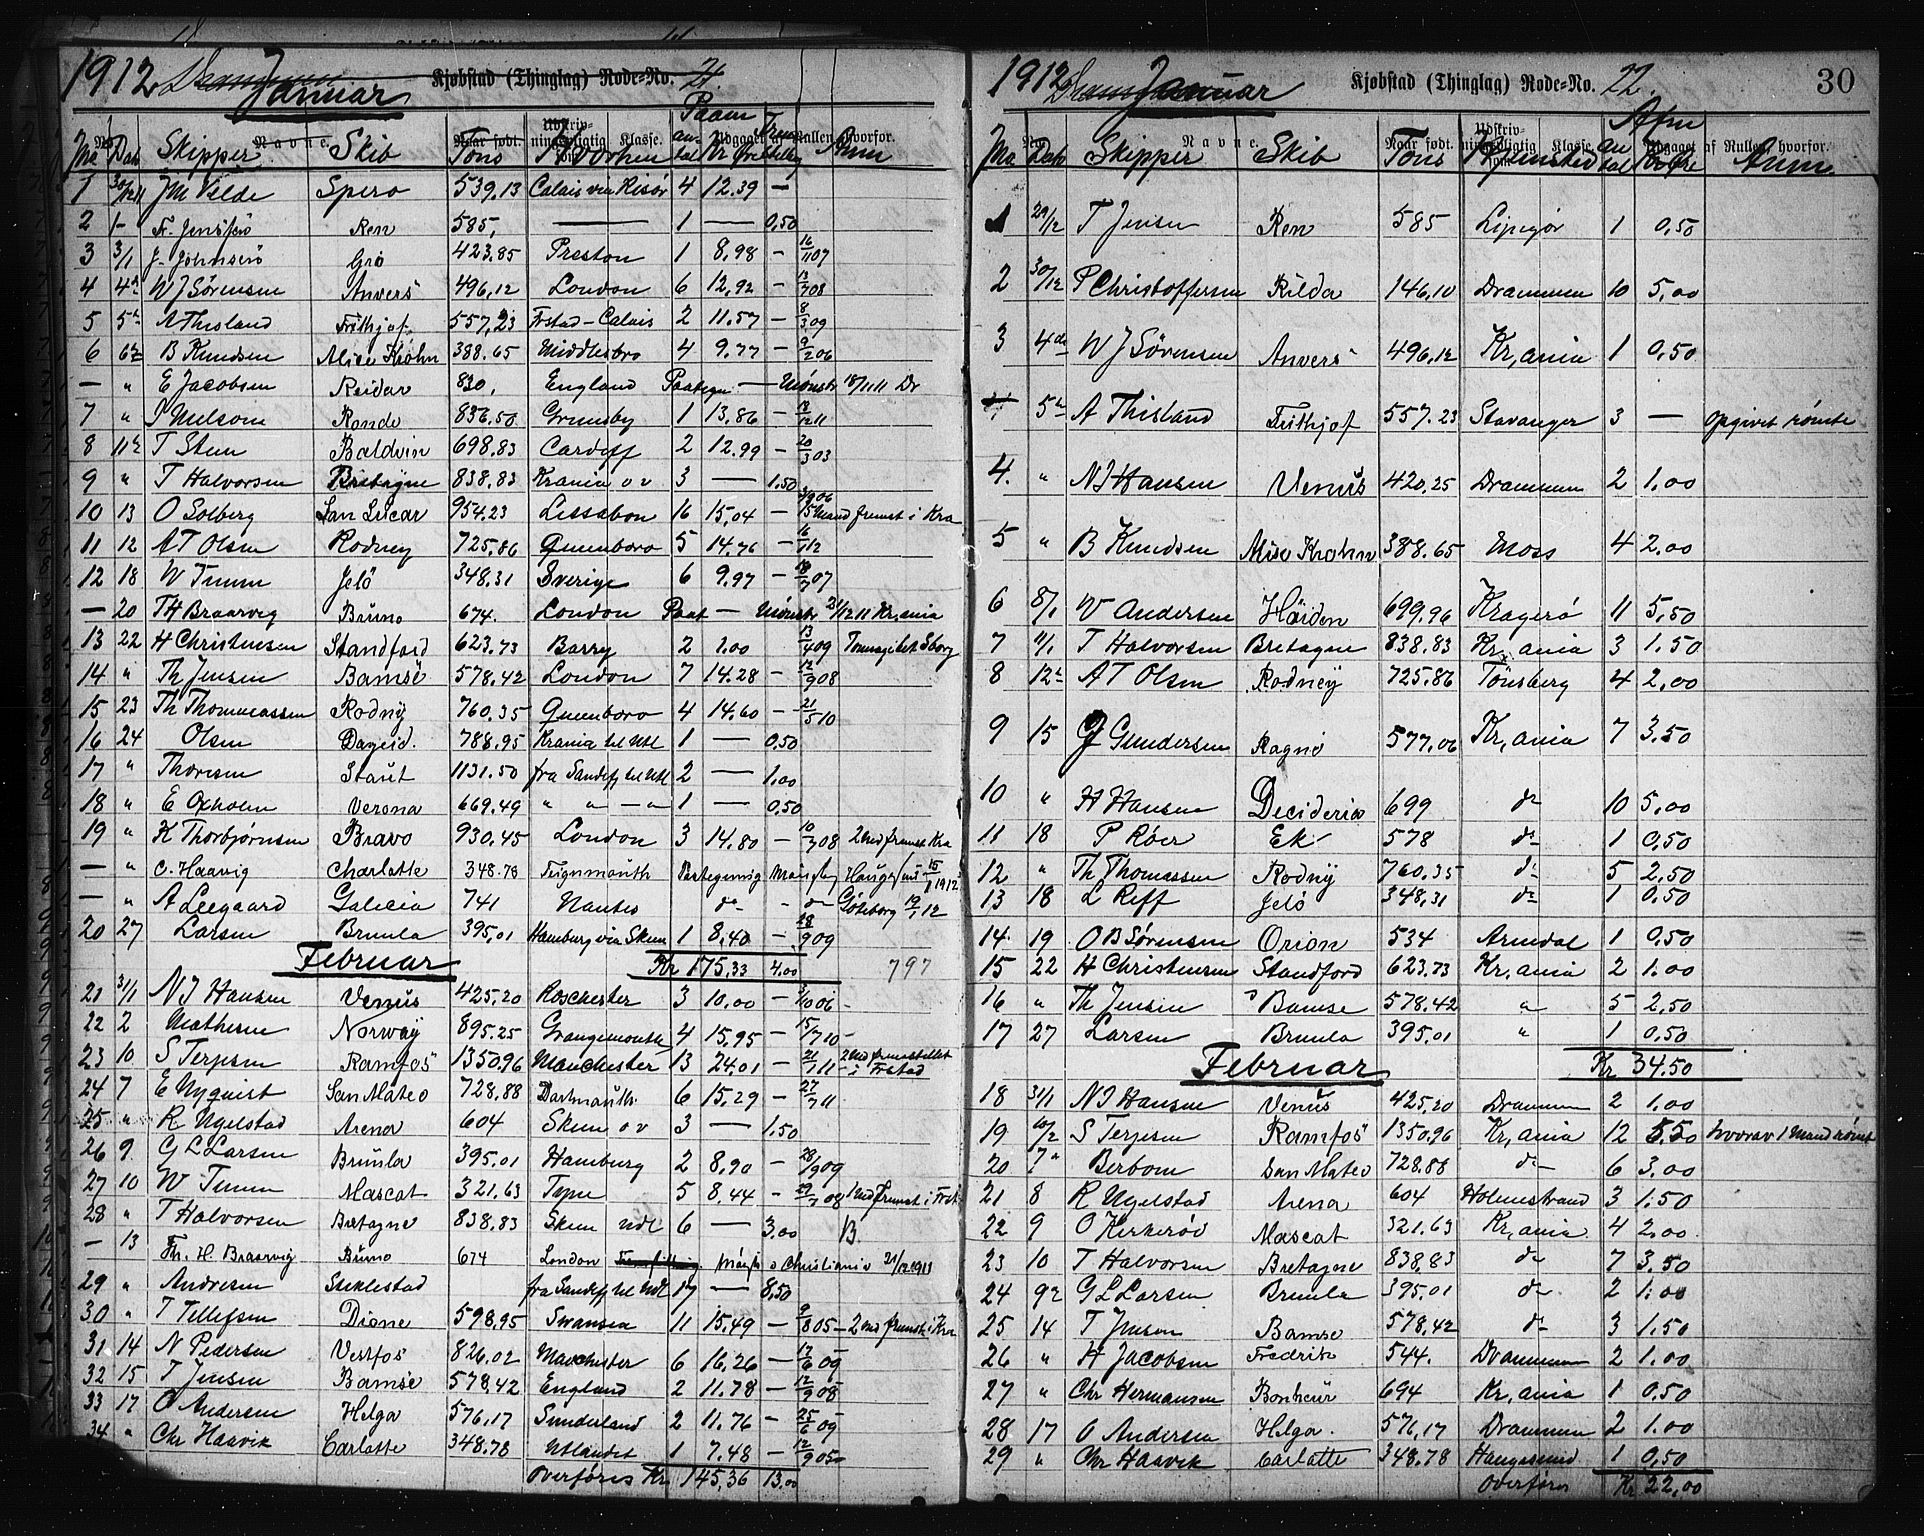 1912 Kjøbstad (Thinglag) Rode-No. 21.
Januar
Paam
No Dat Skipper Skib Tons Hvorhen antal Kr Øre Anm
1 30/12 11 J M Velde Spero 539,13 Calais via Risör 4 12.39 —
2 1- Fr. Jensen Ren 585, — 1 — 0,50
3 3/1 J. Johnsen Gro 423,85 Preston 1 8,98 — 16/11 07
4 4de W J Sørensen Anvers 496,12 London 6 12,92 — 08
5 5te A Thisland Frithjof 557,23 Frstad - Calais 2 11.57 — 8/3 09
6 6te B Knudsen Alise Krohn 388.65 Middlesbro 4 9.77 — 9/2 06
— " E Jacobsen Reidar 830, England Paategn — Mønstr 18/11 11 Dr
7 " Melsom Ronde 836.50 Grimsby 1 13,86 — 11
8 11te T Sten Baldvin 698,83 Cardiff 2 12.99 — 20/3 03
9 " T Halvorsen Bretagne 838,83 Krania o v 3 — 1.50
10 13 O Solberg San Lucar 954.23 Lissabon 16 15,04 — Mand fremst i Kra
11 12 A T Olsen Rodney 725,86 Queenboro 5 14.76 — 12
12 18 W Timm Jelö 348.31 Sverige 6 9.97 — 07
— 20 TH Braarvig Bruno 674. London Paat — Mønstr 21/12 11 Kr,ania
13 22 H Christensen Standford 623,73 Barry 2 1.00 — 13/4 09
14 " Th Jensen Bamse 578,42 London 7 14.28 — 12/9 08
15 23 Th Thomassen Rodny 760,35 Queenboro 4 14.60 — 21/5 10
16 24 Olsen Dageid. 788,95 Krania til Utl 1 — 0,50
17 " Thoresen Staut 1131.50 fra Sandefj til Utl 2 — 1,00
18 " E Oxholm Verona 669,49 " " — " 1 — 0,50
19 " K Thorbjørnsen Bravo 930,45 London 3 14.80 — 08 2 Md fremst Kra
— " C. Haavig Charlotte 348.78 Teignmouth Paategning Haugesund 15/1 1912
— " A Leegaard Galicia 741 Nantes do - do Göteborg 19/1 12
20 27 Larsen Brunla 395,01 Hamburg via Skien 1 8,40 — 28/9 09
Februar Kr 175,33 4.00 797
21 31/1 N J Hansen Venus 425,20 Roschester 3 10.00 — 06 -
22 2 Mathesen Norway 895.25 Grangemouth 4 15,95 — 15/7 10 -
23 10 S Terjesen Ramfos 1350.96 Manchester 13 24.01 — 21/7 11 2 Md fremstillet i Frstad
24 7 E Nyquist San Mateo 728,88 Dartmouth 6 15,29 — 27/7 11
25 " R Ugelstad Arena 604 Skien o v 3 — 1.50
26 9 G L Larsen Brunla 395.01 Hamburg 2 8,90 — 28/9 09
27 10 W Timm Mascat 321,63 Tyne 5 8,44 — 08 1 Md fremst i Frst
28 " T Halvorsen Bretagne 838,83 Skien Udl 6 — 3.00 B
— 13 Th. H. Braarvig Bruno 674 London Christiania 21/12 1911
29 " Andresen Stiklestad fra Sandefj til Udl 17 — 8,50
30 " T Tellefsen Dione 598.95 Swansea 11 15,49 — 9/8 05 - 2 Md fremst i Kra
31 14 N Pedersen Vestfos 826,02 Manchester 6 16.26 — 12/6 09
32 15 T Jensen Bamse 578,42 England 2 11.78 — 12/9 08
33 17 O Andersen Helga 576,17 Sunderland 2 11.76 — 25/6 09
34 " Chr Haavik Carlotte 348.78 Utlandet 1 7.48 — 12/9 05
Overføres Kr 145,36 13.00
1912 Kjøbstad (Thinglag) Rode-No. 22. 30
Januar
Afm
No Dato Skipper Skib Tons Hjemsted antal Kr Øre Anm.
1 29/12 T Jensen Ren 585 1 0,50
2 30/12 P Christoffersen Rilda 146,10 Drammen 10 5,00
3 4de W J Sørensen Anvers 496,12 Kr,ania 1 0,50
5te A Thisland Frithjof 557.23 Stavanger 3 — opgivet rømte
4. " N J Hansen Venus 420,25 Drammen 2 1.00
5 " B Knudsen Alise Krohn 388.65 Moss 4 2,00
6 8/1 W Andersen Höiden 699,96 Kragerø 11 5,50
7 11/1 T Halvorsen Bretagne 838,83 Kr,ania 3 1.50
8 12te A T Olsen Rodney 725,86 Tönsberg 4 2,00
9 15 G Gundersen Ragna 577,06 Kr,ania 7 3.50
10 " H Hansen Decideria 699 do 10 5,00
11 18 P Röer Ek 578 do 1 0,50
12 " Th Thomassen Rodny 760,35 do 5 2,50
13 18 L Reff Jelö 348,31 do 1 0,50
14 19 O B Sørensen Orion 534 Arendal 1 0,50
15 22 H Christensen Standford 623,73 Kr,ania 2 1.00
16 " Th Jensen Bamse 578,42 " 5 2,50
17 27 Larsen Brunla 395,01 " 1 0,50
Februar Kr 34.50
18 31/1 N J Hansen Venus 425,20 Drammen 2 1.00
19 10/2 S Terjesen Ramfos 1350,96 Kr,ania 12 5.50 hvorav 1 Mand rømt
20 7 " Berbom San Mateo 728,88 do 6 3,00
21 8 R Ugelstad Arena 604 Holmestrand 3 1.50
22 9 O Kirkerød Mascat 321.63 Kr,ania 4 2.00
23 10 T Halvorsen Bretagne 838,83 do 7 3.50
24 9de G L Larsen Brunla 395.01 do 2 1.00
25 14 T Jensen Bamse 578,42 do 3 1.50
26 " H Jacobsen Fredrik 544. Drammen 2 1.00
27 " Chr Hermansen Bonheur 694 Kr,ania 1 0,50
28 17 O Andersen Helga. 576,17 Drammen 2 1.00
29 " Chr Haavik Carlotte 348,78 Haugesund 1 0,50
Overføres Kr 22,00